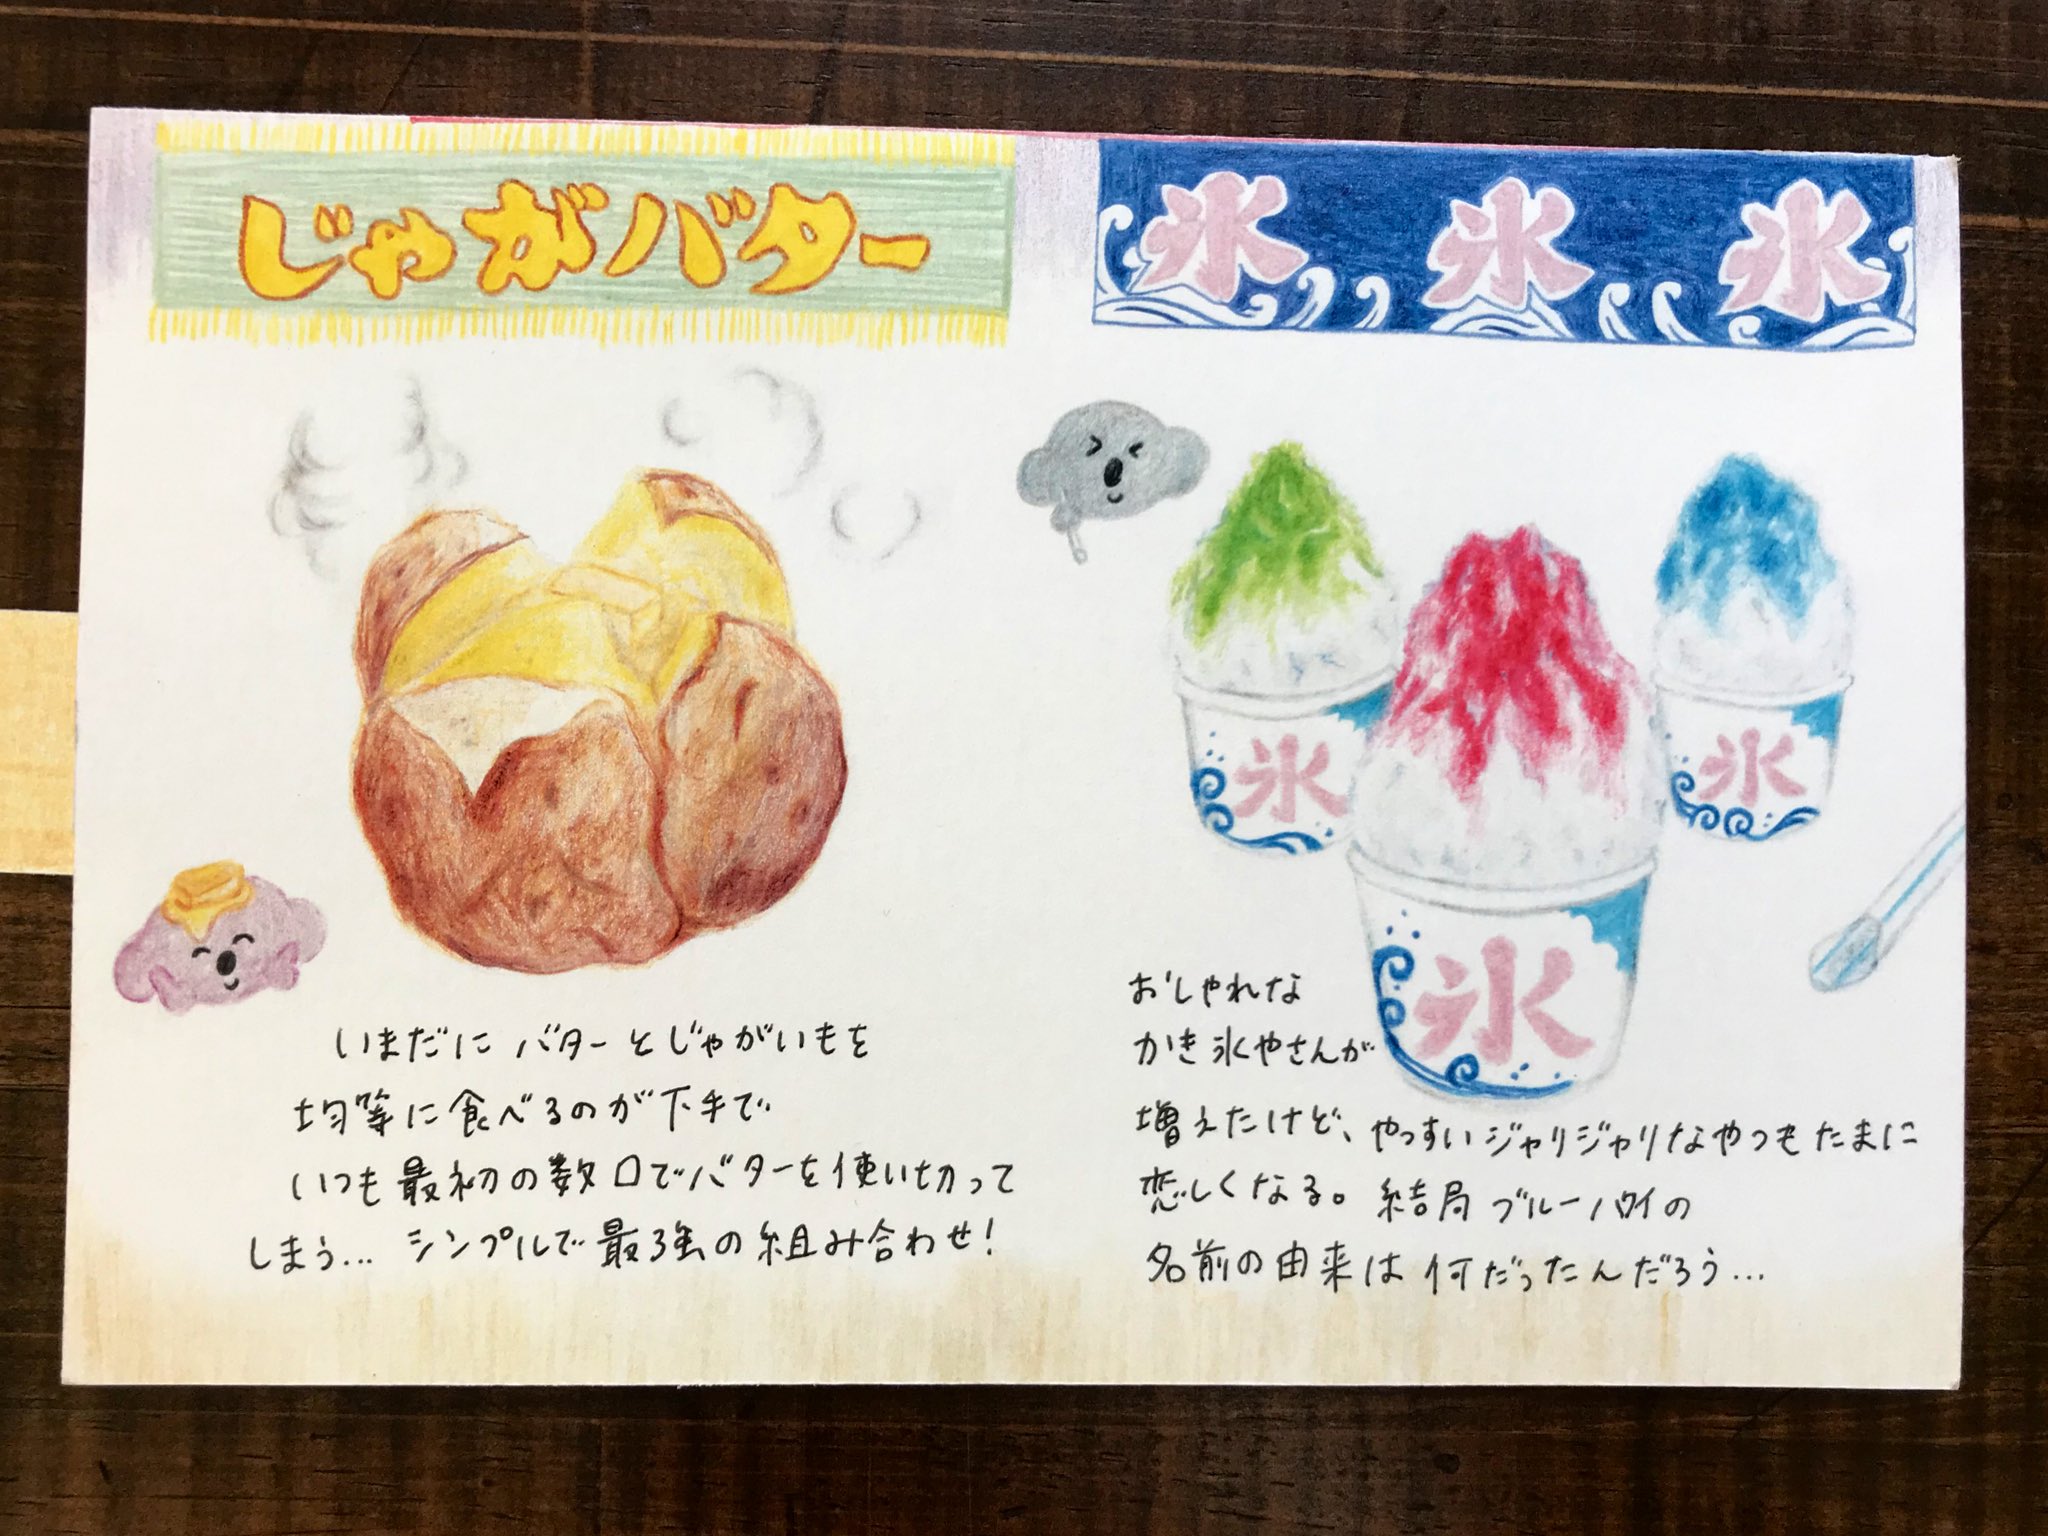 じゃがバター
いまだにバターとじゃがいもを
均等に食べるのが下手で
いつも最初の数口でバターを使い切って
しまう… シンプルで最強の組み合わせ!
氷 氷 氷
氷
氷
氷
おしゃれな
かき氷やさんが
増えたけど、やっすいジャリジャリなやつもたまに
恋しくなる。結局ブルーハワイの
名前の由来は何だったんだろう…